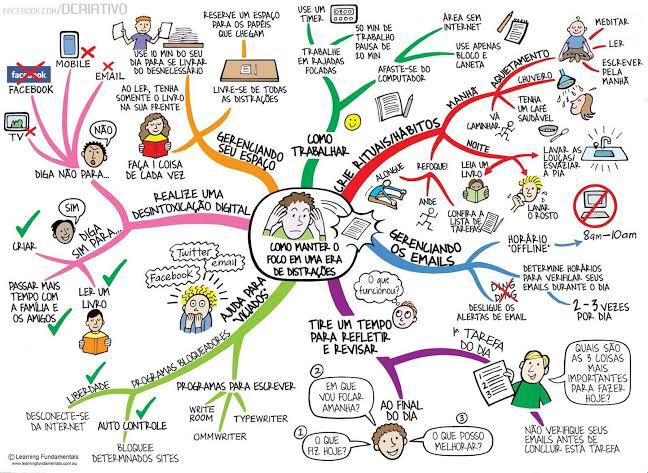 FACEBOOK.COM/DCRIATIVO
COMO MANTER O
FOCO EM UMA ERA
DE DISTRAÇÕES
COMO
TRABALHAR
USE UM
TIMER
50 MIN DE
TRABALHO
PAUSA DE
10 MIN
TRABALHE
EM RAJADAS
FOCADAS
AFASTE-SE DO
COMPUTADOR
ÁREA SEM
INTERNET
USE APENAS
BLOCO E
CANETA
CRIE RITUAIS/HÁBITOS
MANHÃ
AQUIETAMENTO
MEDITAR
LER
ESCREVER
PELA
MANHÃ
CHUVEIRO
TENHA
UM CAFÉ
SAUDÁVEL
VÁ
CAMINHAR
NOITE
LAVAR AS
LOUÇAS/
ESVAZIAR A
PIA
LEIA UM
LIVRO
LAVAR
O ROSTO
CONFIRA A
LISTA DE
TAREFAS
REFOQUE!
ALONGUE
ANDE
GERENCIANDO
OS EMAILS
HORÁRIO
"OFFLINE"
8am-10am
DETERMINE HORÁRIOS
PARA VERIFICAR SEUS
EMAILS DURANTE O DIA
2-3 VEZES
POR DIA
DING
DING
DESLIGUE OS
ALERTAS DE EMAIL
TIRE UM TEMPO
PARA REFLETIR
E REVISAR
O que
funcionou?
1ª TAREFA
DO DIA
QUAIS SÃO
AS 3 COISAS
MAIS
IMPORTANTES
PARA FAZER
HOJE?
NÃO VERIFIQUE SEUS
EMAILS ANTES DE
CONCLUIR ESTA TAREFA
AO FINAL
DO DIA
1
O QUE
FIZ HOJE?
2
EM QUE
VOU FOCAR
AMANHA?
3
O QUE POSSO
MELHORAR?
AJUDA PARA
VICIADOS
Twitter
email
Facebook?
PROGRAMAS BLOQUEADORES
LIBERDADE
DESCONECTE-SE
DA INTERNET
AUTO CONTROLE
BLOQUEIE
DETERMINADOS SITES
PROGRAMAS PARA ESCREVER
WRITE
ROOM
OMMWRITER
TYPEWRITER
REALIZE UMA
DESINTOXICAÇÃO DIGITAL
DIGA NÃO PARA...
NÃO
facebook
FACEBOOK
MOBILE
EMAIL
TV
DIGA
SIM PARA...
SIM
CRIAR
PASSAR MAIS
TEMPO COM
A FAMÍLIA E
OS AMIGOS
LER UM
LIVRO
GERENCIANDO
SEU ESPAÇO
RESERVE UM ESPAÇO
PARA OS PAPÉIS
QUE CHEGAM
USE 10 MIN DO SEU
DIA PARA SE LIVRAR
DO DESNECESSÁRIO
LIVRE-SE DE TODAS
AS DISTRAÇÕES
AO LER, TENHA
SOMENTE O LIVRO
NA SUA FRENTE
FAÇA 1 COISA
DE CADA VEZ
© Learning Fundamentals
www.learningfundamentals.com.au